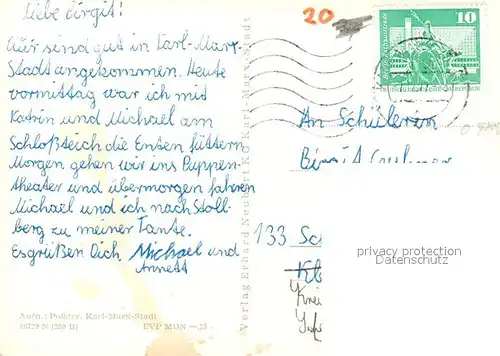 Liebe Birgit!
Wir sind gut in Karl-Marx-
Stadt angekommen. Heute
vormittag war ich mit
Katrin und Michael am
Schloßteich die Enten füttern
Morgen gehen wir ins Puppen-
theater und übermorgen fahren
Michael und ich nach Stoll-
berg zu meiner Tante.
Es grüßen Dich Michael und
Annett
Aufn.: Polster, Karl-Marx-Stadt
EVP MDN
Verlag Erhard Neubert KG Karl-Marx-Stadt
20
10
An Schülerin
Birgit
133
privacy protection
Datenschutz